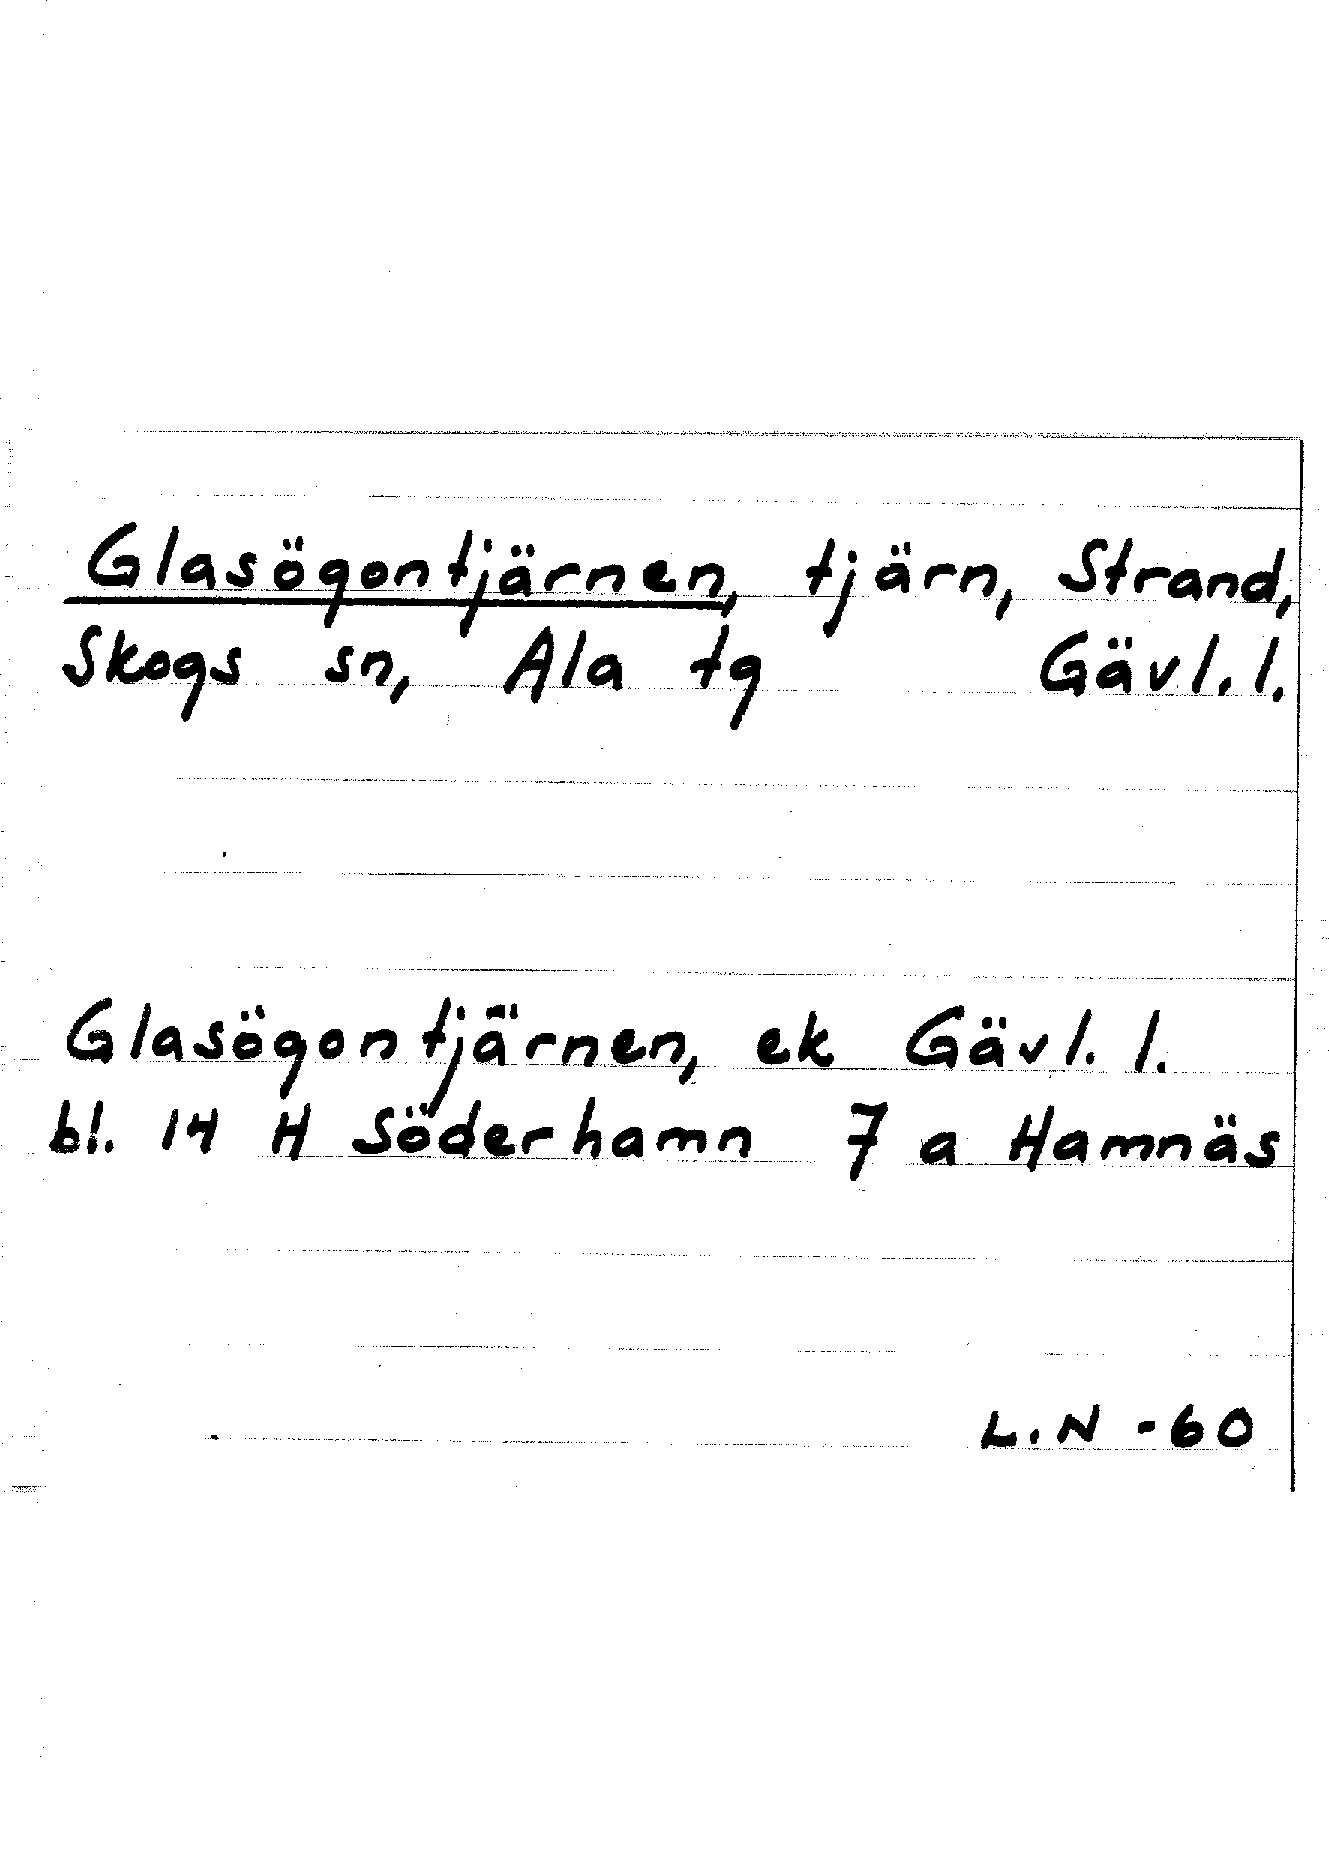 Glasögontjärnen, tjärn, Strand,
Skogs sn, Ala tg Gävl. l.
Glasögontjärnen, ek Gävl. l.
bl. 14 H Söderhamn 7 a Hamnäs
L.N -60